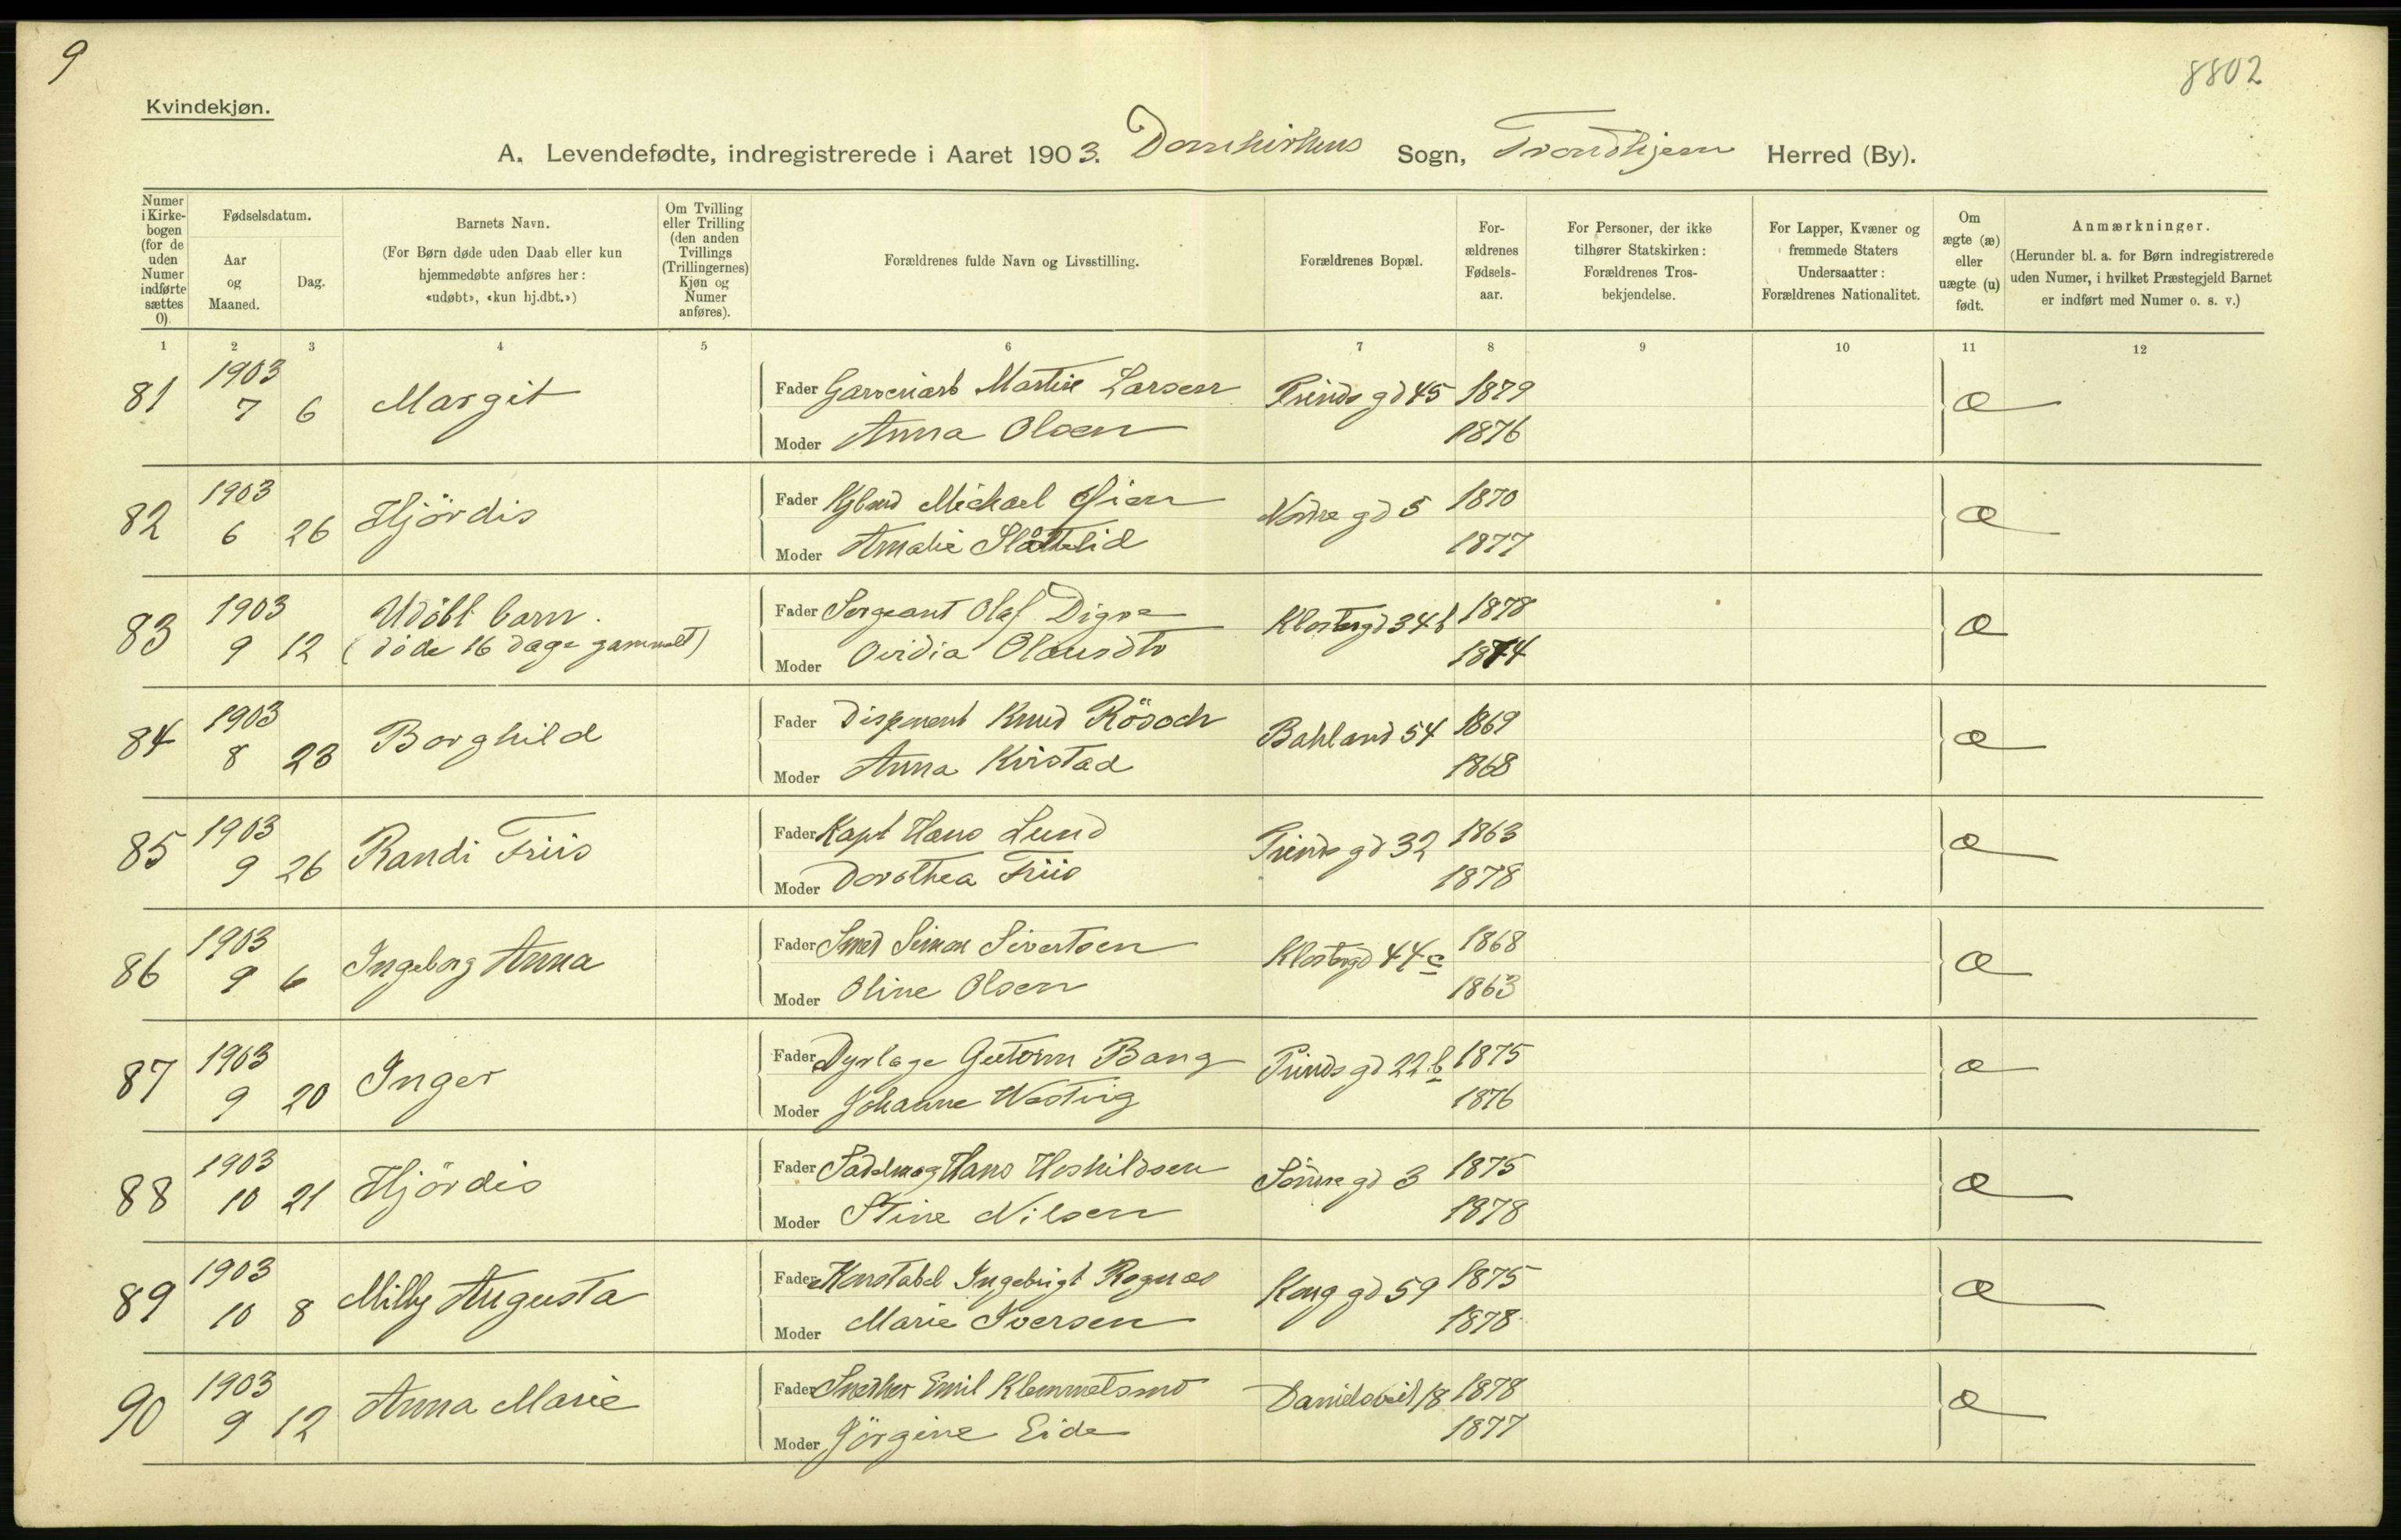 9
8802
Kvindekjøn.
A. Levendefødte, indregistrerede i Aaret 1903. Domkirkens Sogn, Trondhjem Herred (By).
Numer i Kirkebogen (for de uden Numer indførte sættes 0).
Fødselsdatum.
Aar og Maaned.
Dag.
Barnets Navn.
(For Børn døde uden Daab eller kun hjemmedøbte anføres her: «udøbt», «kun hj.dbt.»)
Om Tvilling eller Trilling (den anden Tvillings (Trillingernes) Kjøn og Numer anføres).
Forældrenes fulde Navn og Livsstilling.
Forældrenes Bopæl.
Forældrenes Fødselsaar.
For Personer, der ikke tilhører Statskirken: Forældrenes Trosbekjendelse.
For Lapper, Kvæner og fremmede Staters Undersaatter: Forældrenes Nationalitet.
Om ægte (æ) eller uægte (u) født.
Anmærkninger.
(Herunder bl. a. for Børn indregistrerede uden Numer, i hvilket Præstegjeld Barnet er indført med Numer o. s. v.)
1 2 3 4 5 6 7 8 9 10 11 12
81 1903 7 6 Margit Fader Garveriarb Martin Larsen Prinds gd 45 1879 æ
Moder Anna Olsen 1876
82 1903 6 26 Hjördis Fader Kjbmd Michael Öien Nordre gd 5 1870 æ
Moder Amalie Slåttelid 1877
83 1903 9 12 Udöbt barn. Fader Sergeant Olaf Digre Klostergd 34 b 1878 æ
(döde 16 dage gammelt) Moder Ovidia Olausdtr 1874
84 1903 8 23 Borghild Fader Disponent Knud Rösoch Bakland 54 1869 æ
Moder Anna Kvistad 1868
85 1903 9 26 Randi Friis Fader Kapt Hans Lund Prinds gd 32 1863 æ
Moder Dorothea Friis 1878
86 1903 9 6 Ingeborg Anna Fader Smed Simon Sivertsen Klostergd 44 c 1868 æ
Moder Oline Olsen 1863
87 1903 9 20 Inger Fader Dyrlæge Guttorm Bang Prinds gd 22 b 1875 æ
Moder Johanne Westvig 1876
88 1903 10 21 Hjördis Fader Sadelmag Hans Hoskildsen Söndre gd 3 1875 æ
Moder Stine Nilsen 1878
89 1903 10 8 Milly Augusta Fader Konstabel Ingebrigt Rognæs Kong gd 59 1875 æ
Moder Marie Iversen 1878
90 1903 9 12 Anna Marie Fader Snedker Emil Klemmetsmo Danielsveit 18 1878 æ
Moder Jörgine Eide 1877